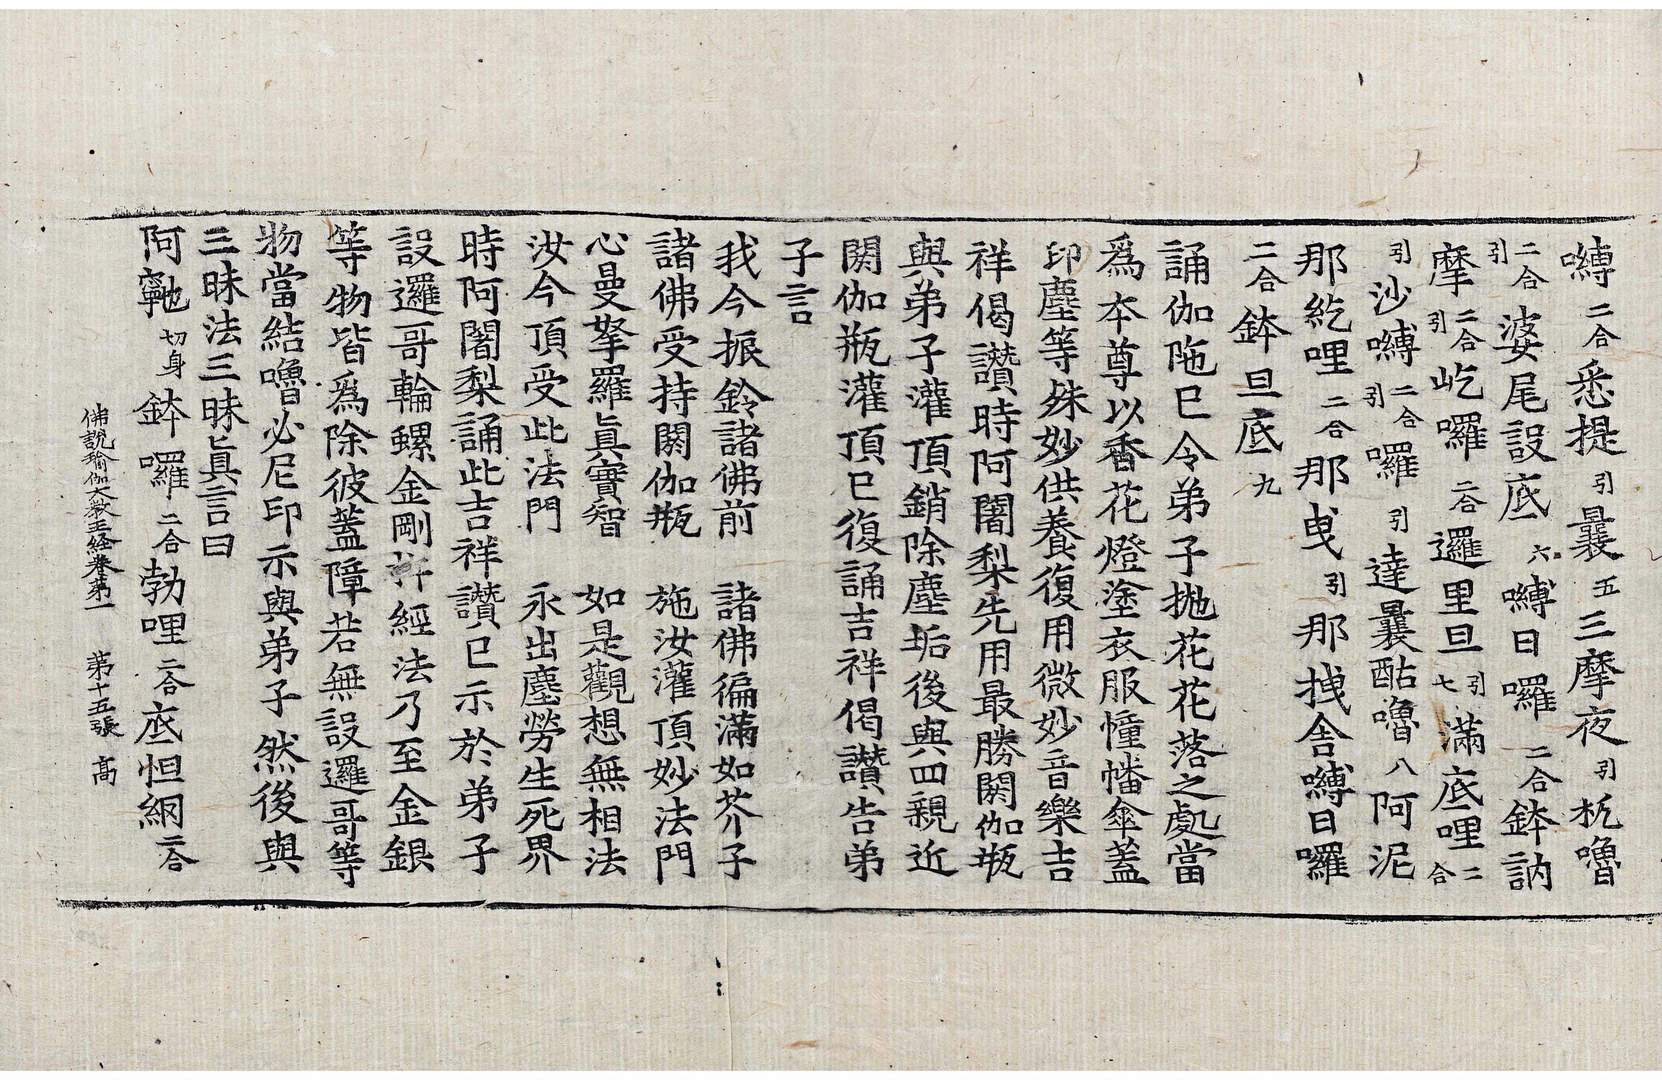 嚩二合悉提引曩五三摩夜引柢嚕
二合引婆尾設底六嚩日囉二合鉢訥
摩二合引屹囉二合邏里旦引七滿底哩二合
引沙嚩二合引囉引達曩酤嚕八阿泥
那紇哩二合那曳引那拽舍嚩日囉
二合鉢旦底九
誦伽陁已令弟子抛花花落之處當
爲本尊以香花燈塗衣服幢幡傘蓋
印塵等殊妙供養復用微妙音樂吉
祥偈讚時阿闍梨先用最勝閼伽瓶
與弟子灌頂銷除塵垢後與四親近
閼伽瓶灌頂已復誦吉祥偈讚告弟
子言
我今振鈴諸佛前 諸佛徧滿如芥子
諸佛受持閼伽瓶 施汝灌頂妙法門
心曼拏羅眞實智 如是觀想無相法
汝今頂受此法門 永出塵勞生死界
時阿闍梨誦此吉祥讚已示於弟子
設邏哥輪螺金剛幷經法乃至金銀
等物皆爲除彼蓋障若無設邏哥等
物當結嚕必尼印示與弟子然後與
三昧法三昧眞言曰
阿切身鉢囉二合勃哩二合底怛綱二合
佛說瑜伽大教王経卷第一 第十五張 髙